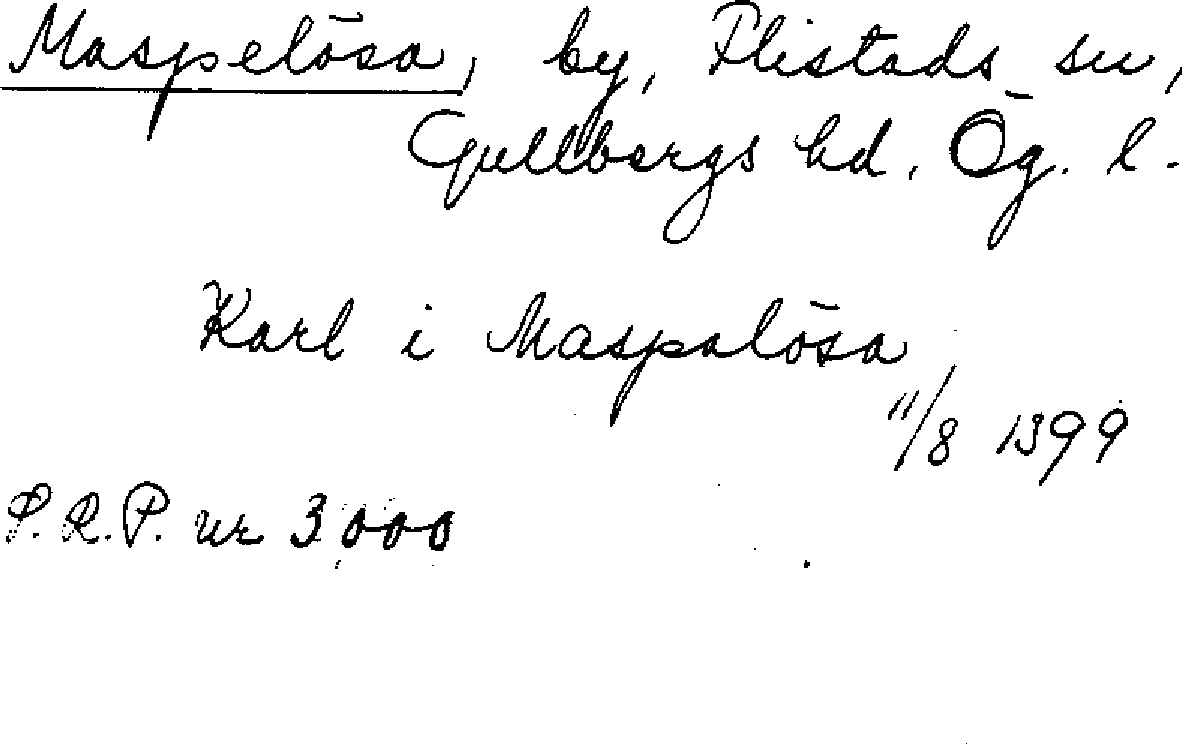 Maspelösa, by, Flistads sn,
Gullbergs hd. Ög. l.
Karl i Maspalösa
11/8 1399
P.R.P. nr 3000